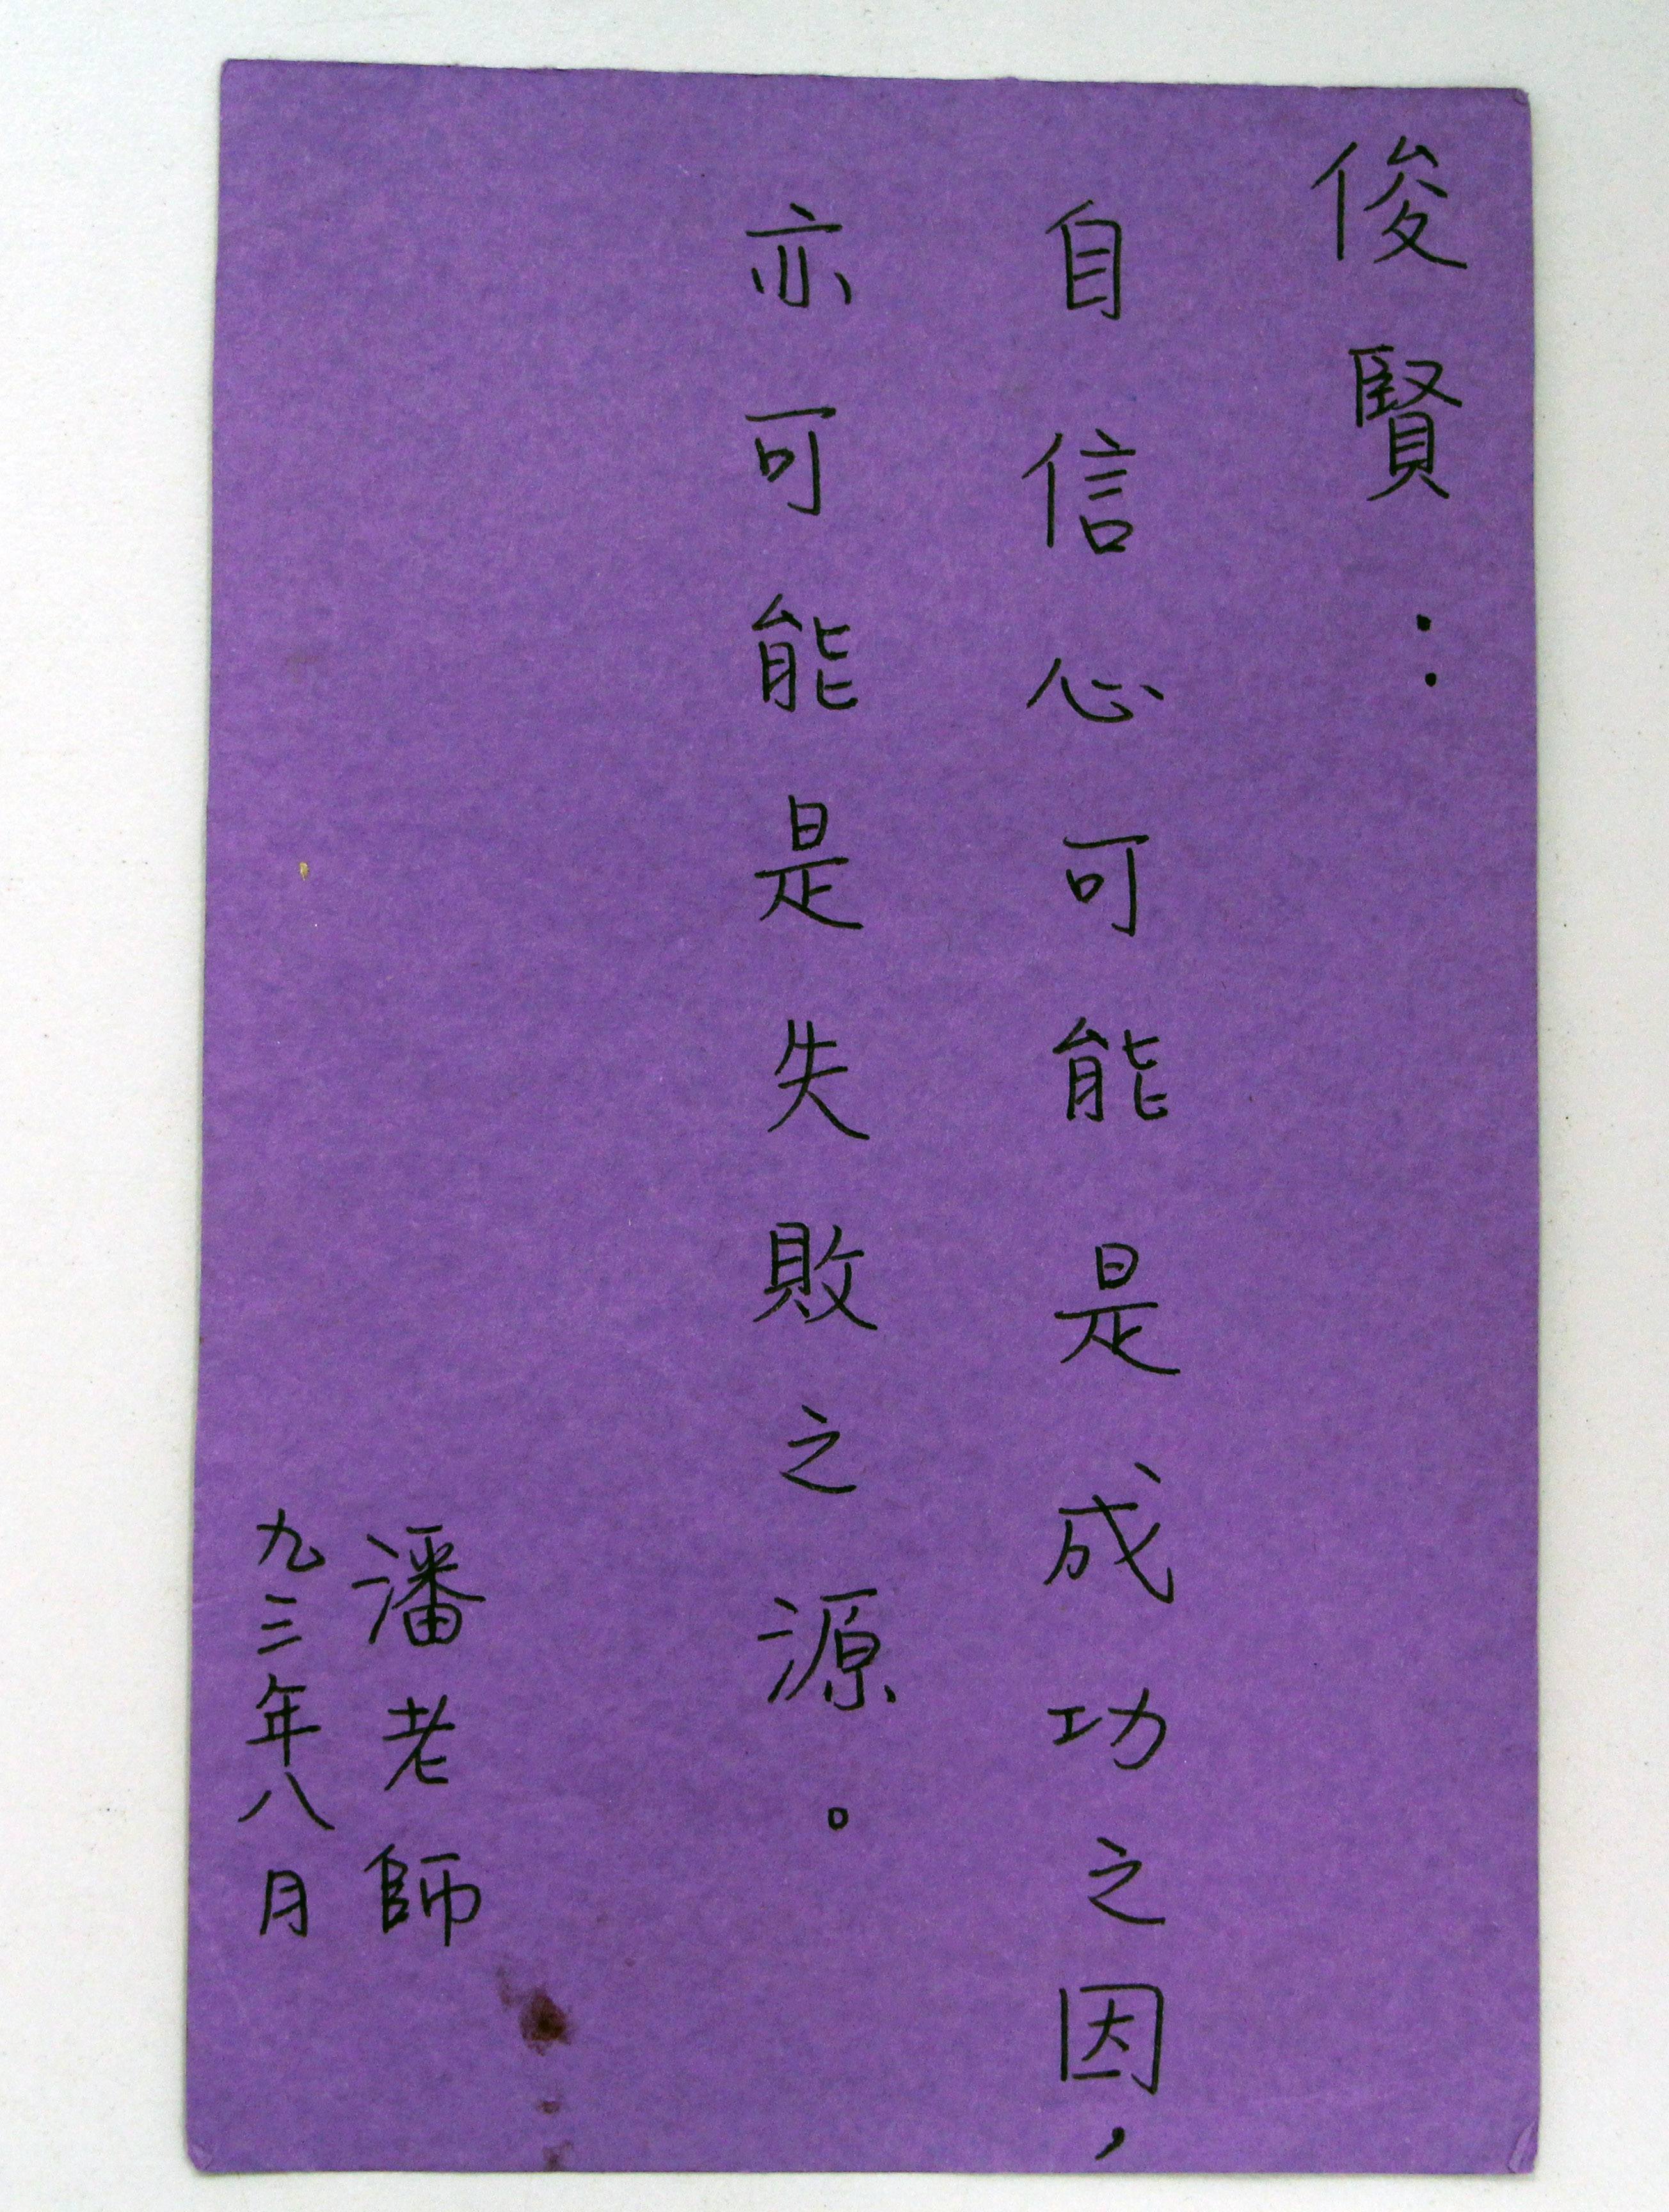 俊賢：
自信心可能是成功之因，
亦可能是失敗之源。
潘老師
九三年八月